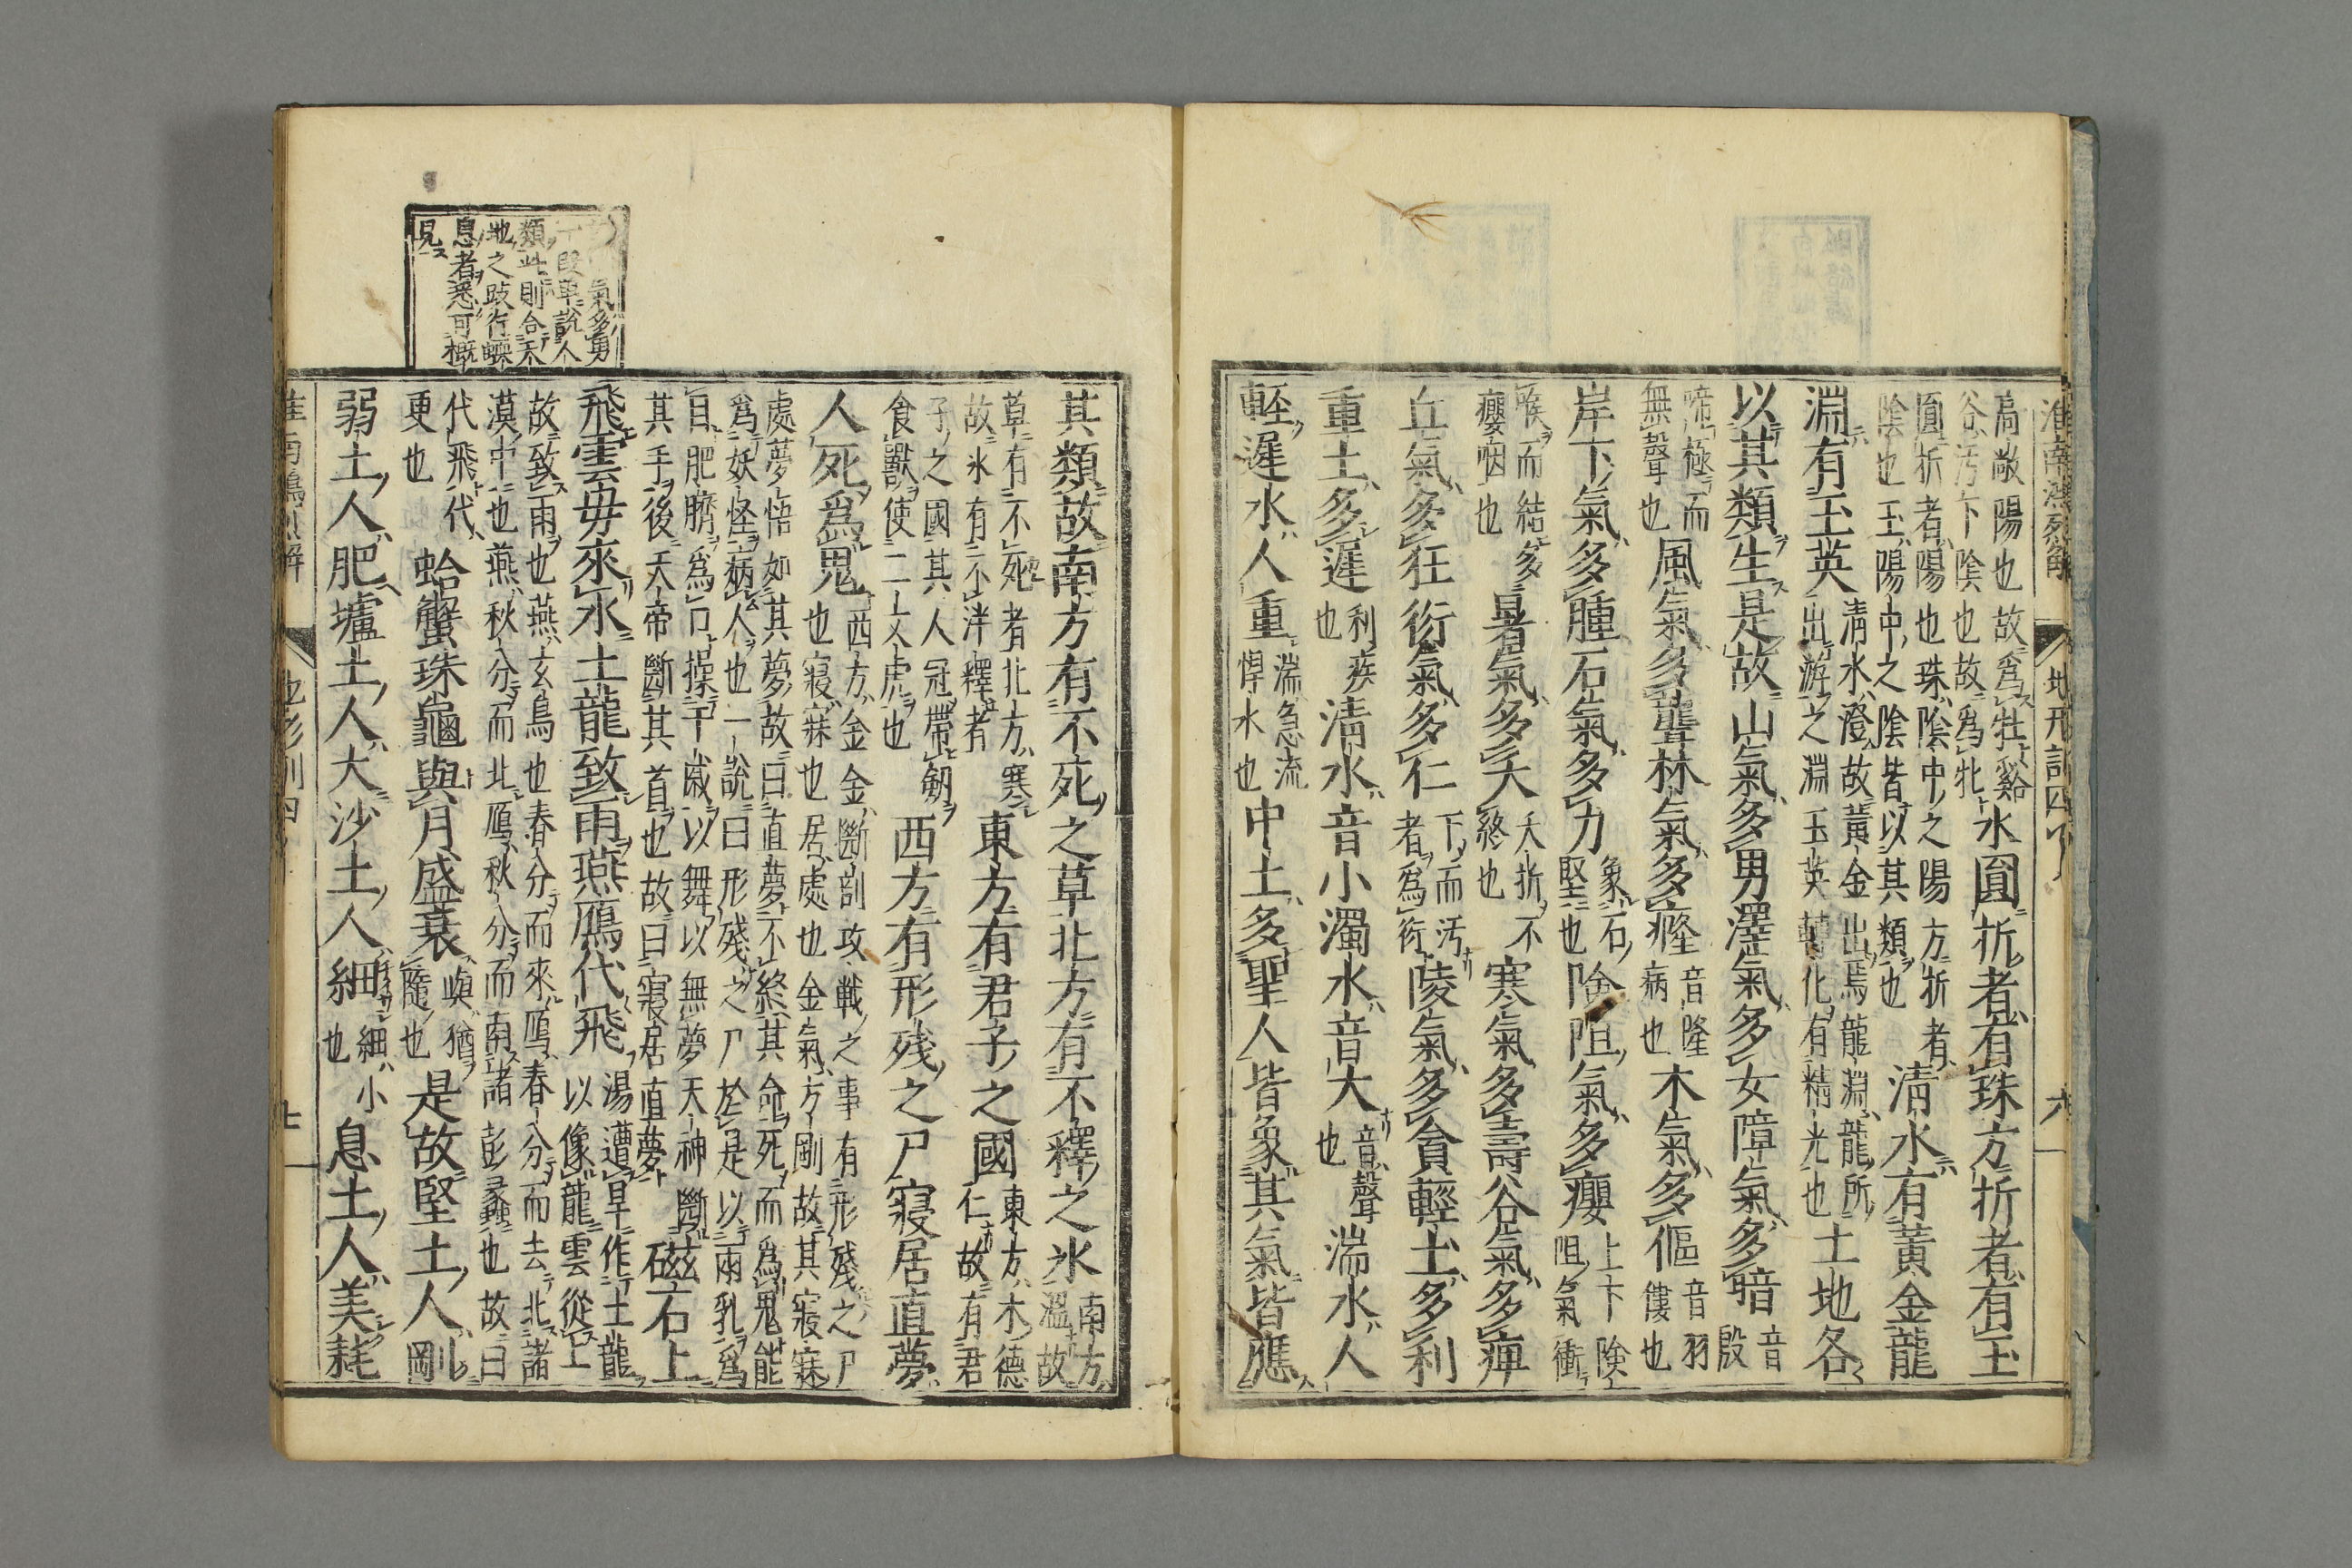 淮南鴻烈解 地形訓四 六
高敞陽也故爲牡谿
谷汚下陰也故爲牝水圓折者有珠方折者有玉
圓折者陽也珠陰中之陽方折者
陰也玉陽中之陰皆以其類也清水有黃金龍
淵有玉英清水澄故黃金出焉龍淵龍所
出游之淵玉英轉化有精光也土地各
以其類生是故山氣多男澤氣多女障氣多暗音
殷
啼極而
無聲也風氣多聾林氣多癃音隆
病也木氣多傴音羽
僂也
岸下氣多腫石氣多力象石
堅也險阻氣多癭上下險
阻氣衝
喉而結多
癭咽也暑氣多夭夭折不
終也寒氣多壽谷氣多痺
丘氣多狂衍氣多仁下而汚
者爲衍陵氣多貪輕土多利
重土多遲利疾
也清水音小濁水音大音聲
也湍水人
輕遲水人重湍急流
悍水也中土多聖人皆象其氣皆應
其類故南方有不死之草北方有不釋之氷南方
溫故
草有不死者北方寒
故氷有不泮釋者東方有君子之國東方木德
仁故有君
子之國其人冠帶劒
食獸使二文虎也西方有形残之尸寢居直夢
人死爲鬼西方金金斷割攻戰之事有形殘之尸
也寢寐也居處也金氣方剛故其寢寐
處夢悟如其夢故曰直夢不終其命死而爲鬼能
爲妖怪病人也一說曰形殘之尸於是以兩乳爲
目肥臍爲口操干戚以舞以無夢天神斷
其手後天帝斷其首也故曰寢居直夢磁石上
飛雲母來水土龍致雨燕鴈代飛湯遭旱作土龍
以像龍雲從上
故致雨也燕玄鳥也春分而來鴈春分而去北諸
漠中也燕秋分而北鴈秋分而南諸彭蠡也故曰
代飛代
更也蛤蟹珠龜與月盛衰嶼猶
隨也是故堅土人剛
弱土人肥壚土人大沙土人細細小
也息土人美耗
氣多男
下段單說人
類此則合天
地之跂行蟯
息者悉可概
見
七